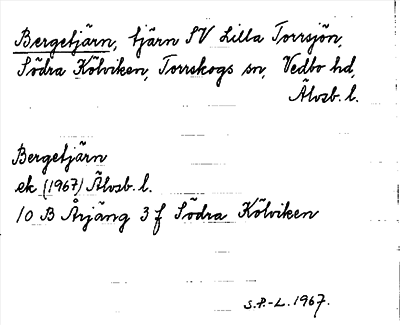 Bergetjärn, tjärn SV Lilla Torrsjön,
Södra Kölviken, Torrskogs sn, Vedbo hd,
Älvsb. l.
Bergetjärn
ek (1967) Älvsb. l.
10 B Årjäng 3 f Södra Kölviken
S.P.-L. 1967.